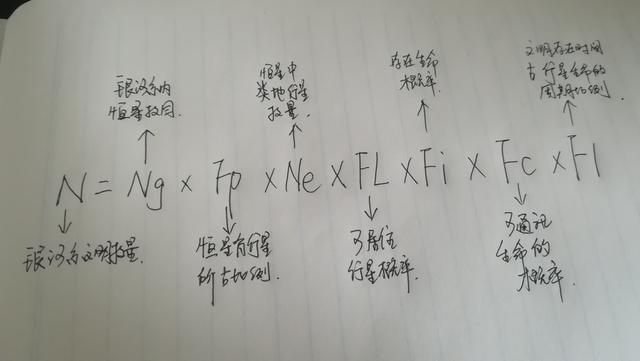 银河系内
恒星数目.
恒星中
类地行星
数量.
存在生命
概率.
文明存在时间
占行星生命的
周期比例.
N = Ng × Fp × Ne × FL × Fi × Fc × Fl
银河系文明数量.
恒星有行星
所占比例.
可居住
行星概率.
可通讯
生命的
概率.